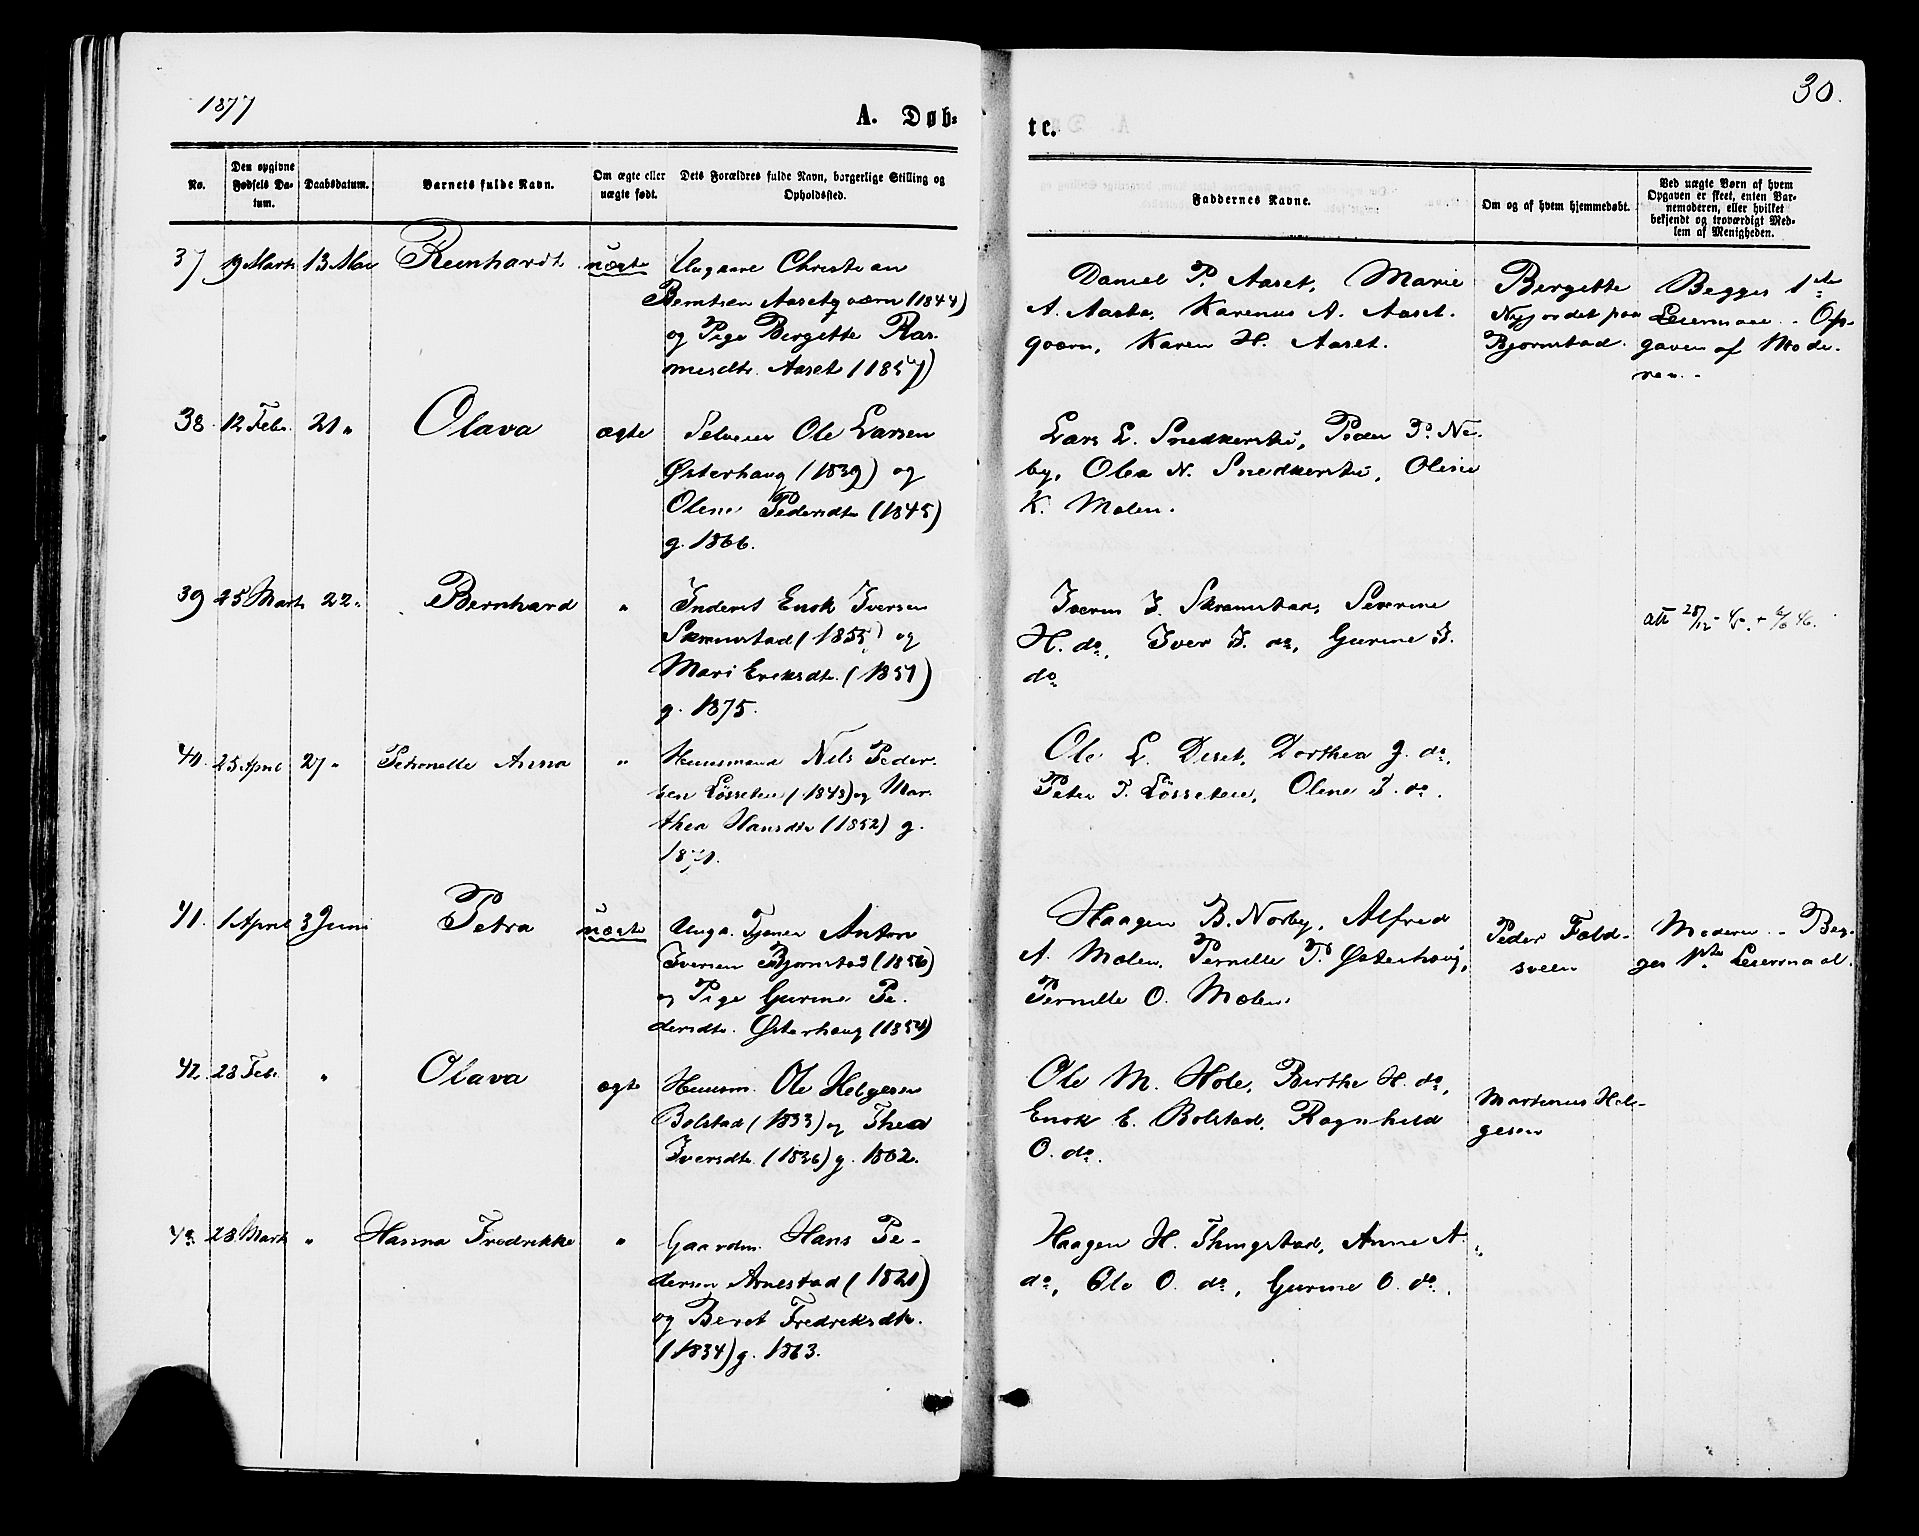 1877
30.
A. Døb-
te.
No.
Den opgivne Fødsels Da-tum.
Daabsdatum.
Barnets fulde Navn.
Om ægte eller uægte født.
Dets Forældres fulde Navn, borgerlige Stilling og Opholdssted.
Faddernes Navne.
Om og af hvem hjemmedøbt.
Ved uægte Børn af hvem Opgaven er skeet, enten Bar-nemoderen, eller hvilket bekjendt og troværdigt Med-lem af Menigheden.
37 9 Marts 13 Mai Reinhardt uægte
Ungkarl Christian
Berntsen Aasetqværn (1844)
og Pige Bergitte Ras-
musdtr. Aaset (1857)
Daniel P. Aaset, Marie
A. Aasta, Karenus A. Aaset-
qværn, Karen H. Aaset.
Bergitte
Nyjordet paa
Bjørnstad.
Begges 1ste
Leiermaal. Op-
gaven af Mode-
ren.
38 12 Febr. 21 " Olava ægte
Selveier Ole Larsen
Østerhaug (1839) og
Oline Pedersdtr (1845)
g. 1866.
Lars L. Snedkerstu, Peder P. Ne-
by, Olea N. Snedkerstu, Oline
K. Molen.
39 25 Marts 22 " Bernhard "
Inderst Enok Iversen
Skramstad (1855) og
Mari Eriksdtr. (1851)
g. 1875.
Iveren I. Skramstad, Severine
H. do, Iver I. do, Gurine I.
do
att 28/12- 45. + 6/6 46.
40. 25 April 27 " Petronelle Anna "
Huusmand Nils Peder-
sen Løsseteie (1843) og Mar-
thea Hansdtr (1852) g.
1871.
Ole L. Deset, Dorthea J. do,
Peter P. Løsseteie, Oline P. do.
41. 1 April 3 Juni Petra uægte
Ungk. Tjener Anton
Iversen Bjørnstad (1856)
og Pige Gurine Pe-
dersdtr. Østerhaug (1854)
Haagen B. Norby, Alfred
A. Molen, Pernille P. Østerhaug,
Pernille O. Molen.
Peder Fald-
sveen
Moderen. Beg-
ges 1ste Leiermaal.
42. 28 Feb. " Olava ægte
Huusm. Ole Helgesen
Bolstad (1833) og Thea
Iversdtr. (1836) g. 1862.
Ole M. Hole, Berthe H. do,
Enok E. Bolstad, Ragnhild
O. do.
Martinus Hel-
gesen
43 28 Marts " Hanna Fredrikke "
Gaardm. Hans Pe-
dersen Arnestad (1821)
og Beret Fredriksdtr.
(1834) g. 1863.
Haagen H. Thingstad, Anne A.
do, Ole O. do, Gurine O. do.